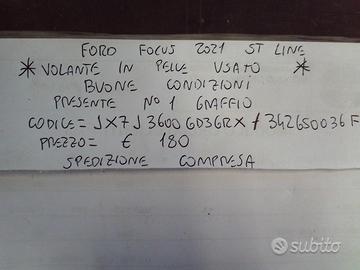 FORD FOCUS 2021 ST LINE
* VOLANTE IN PELLE USATO *
BUONE CONDIZIONI
PRESENTE N°1 GRAFFIO
CODICE= JX7J3600GD3GRX / 342650036F
PREZZO= € 180
SPEDIZIONE COMPRESA
subito